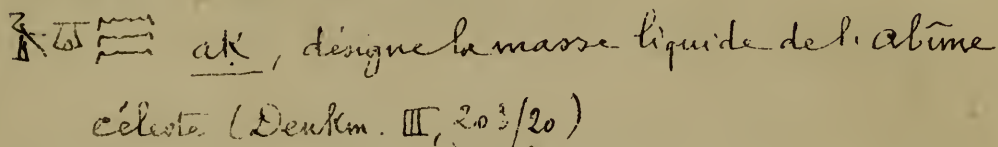 ak, désigne la masse liquide de l'abîme
céleste (Denkm. III, 203/20)